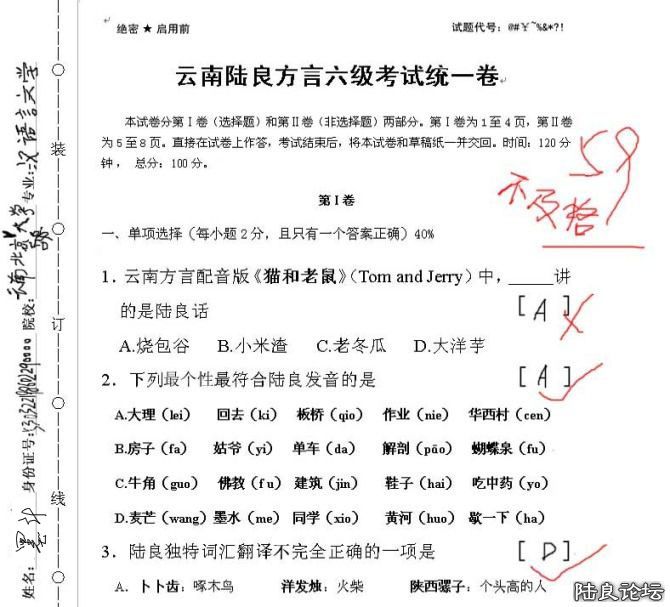 绝密 ★ 启用前
试题代号：@#￥~%&*?!
云南陆良方言六级考试统一卷
本试卷分第Ⅰ卷（选择题）和第Ⅱ卷（非选择题）两部分。第Ⅰ卷为1至4页，第Ⅱ卷
为5至8页。直接在试卷上作答，考试结束后，将本试卷和草稿纸一并交回。时间：120分
钟， 总分：100分。
59
不及格
第Ⅰ卷
一、单项选择（每小题2分，且只有一个答案正确）40%
1．云南方言配音版《猫和老鼠》（Tom and Jerry）中，_____讲
的是陆良话
[ A ]
A.烧包谷 B.小米渣 C.老冬瓜 D.大洋芋
2．下列最个性最符合陆良发音的是 [ A ]
A.大理（lei） 回去（ki） 板桥（qio） 作业（nie） 华西村（cen）
B.房子（fa） 姑爷（yi） 单车（da） 解剖（pāo） 蝴蝶泉（fu）
C.牛角（guo） 佛教（fu） 建筑（jin） 鞋子（hai） 吃中药（yo）
D.麦芒（wang）墨水（me） 同学（xio） 黄河（huo） 歇一下（ha）
3．陆良独特词汇翻译不完全正确的一项是 [ D ]
A．卜卜齿：啄木鸟 洋发烛：火柴 陕西骡子：个头高的人
装
订
线
姓名：
身份证号：
院校：云南北京大学
专业：汉语言文学
陆良论坛